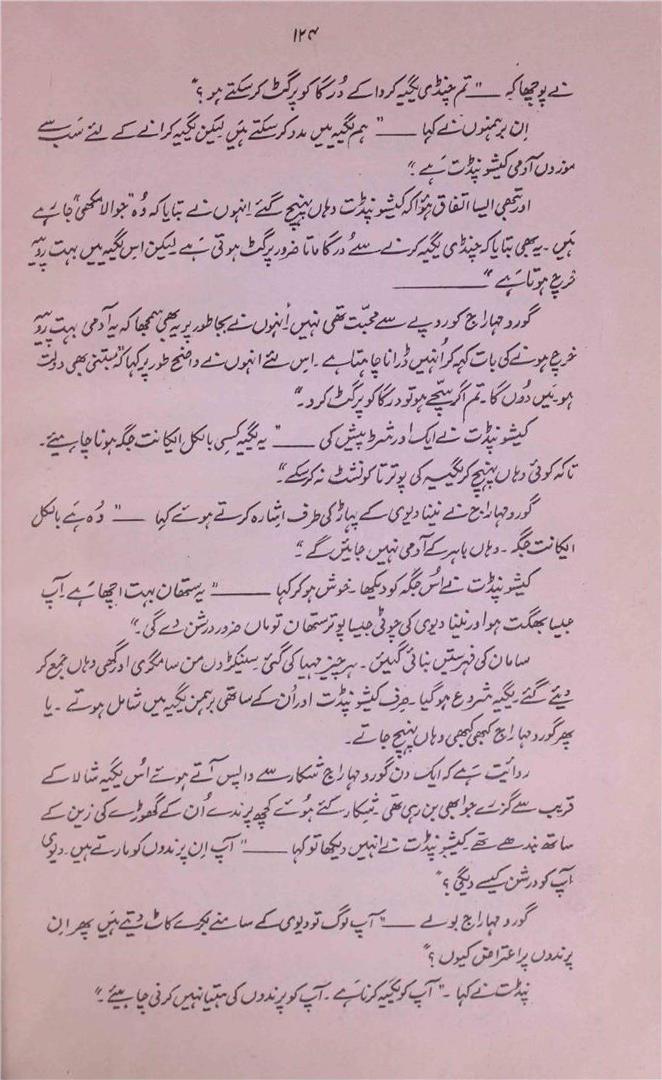 ۱۲۴
نے پوچھا کہ ــــ "تم چنڈی یگیہ کروا کے دُرگا کو پرگٹ کر سکتے ہو؟"
اِن برہمنوں نے کہا ــــ "ہم یگیہ میں مدد کر سکتے ہیں لیکن یگیہ کرانے کے لئے سَب سے
موزوں آدمی کیشو پنڈت ہَے۔"
اور تبھی ایسا اتفاق ہؤا کہ کیشو پنڈت وہاں پہنچ گئے اِنہوں نے بتایا کہ وُہ "جوالا مکھی" جا رہے
ہَیں۔ یہ بھی بتایا کہ چنڈی یگیہ کرنے سے دُرگا ماتا ضرور پرگٹ ہوتی ہَے لیکن اس یگیہ میں بہت روپیہ
خرچ ہوتا ہَے" ــــــــ
گورو مہاراج کو روپے سے محبّت تھی نہیں اُنہوں نے بجا طور پر یہ بھی سمجھا کہ یہ آدمی بہت روپیہ
خرچ ہونے کی بات کہہ کر اُنہیں ڈرانا چاہتا ہے۔ اس لئے انہوں نے واضح طور پر کہا کہ "جتنی بھی دولت
ہو میَں دُوں گا۔ تم اگر سچّے ہو تو درگا کو پرگٹ کرو۔"
کیشو پنڈت نے ایک اور شرط پیش کی ــــ "یہ یگیہ کسی بالکل ایکانت جگہ ہونا چاہیئے۔
تاکہ کوئی وہاں پہنچ کر یگیہ کی پوترتا کو نشٹ نہ کر سکے"
گورو مہاراج نے نینا دیوی کے پہاڑ کی طرف اشارہ کرتے ہوئے کہا ــــ "وُہ ہَے بالکل
ایکانت جگہ۔ وہاں باہر کے آدمی نہیں جائیں گے۔"
کیشو پنڈت نے اُس جگہ کو دیکھا۔ خوش ہو کر کہا ــــــ "یہ ستھان بہت اچھا ہَے آپ
جیسا بھگت ہو اور نینا دیوی کی چوٹی جیسا پوتر ستھان تو ماں ضرور درشن دے گی۔"
سامان کی فہرستیں بنائی گئیں۔ ہر چیز مہیا کی گئی سینکڑوں من سامگری اور گھی وہاں جمع کر
دیئے گئے۔ یگیہ شروع ہو گیا۔ صِرف کیشو پنڈت اور اُن کے ساتھی برہمن یگیہ میں شامل ہوتے۔ یا
پھر گورو مہاراج کبھی کبھی وہاں پہنچ جاتے۔
روائیت ہَے کہ ایک دن گورو مہاراج شکار سے واپس آتے ہوئے اُس یگیہ شالا کے
قریب سے گزرے جو ابھی بن رہی تھی۔ شکار کئے ہُوئے کچھ پرندے اُن کے گھوڑے کی زین کے
ساتھ بندھے تھے کیشو پنڈت نے انہیں دیکھا تو کہا ــــ "آپ اِن پرندوں کو مارتے ہیں۔ دیوی
آپ کو درشن کیسے دیگی؟"
گورو مہاراج بولے ــــ "آپ لوگ تو دیوی کے سامنے بکرے کاٹ دیتے ہیں پھر اِن
پرندوں پر اعتراض کیوں؟"
پنڈت نے کہا۔ "آپ کو یگیہ کرنا ہَے۔ آپ کو پرندوں کی ہتیا نہیں کرنی چاہیئے۔"